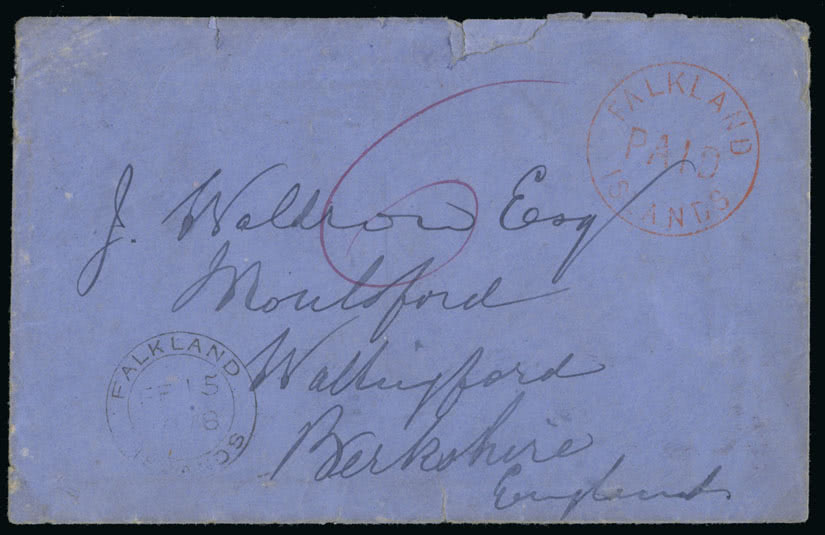 FALKLAND
PAID
ISLANDS
6
J. Waldron Esq
Moulsford
Wallingford
Berkshire
England
FALKLAND